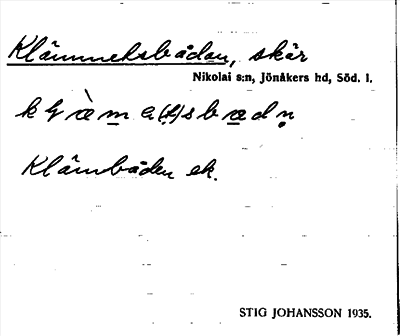 Klämmeksbådan, skär
Nikolai s:n, Jönåkers hd, Söd. l.
Klämbåden ek.
STIG JOHANSSON 1935.